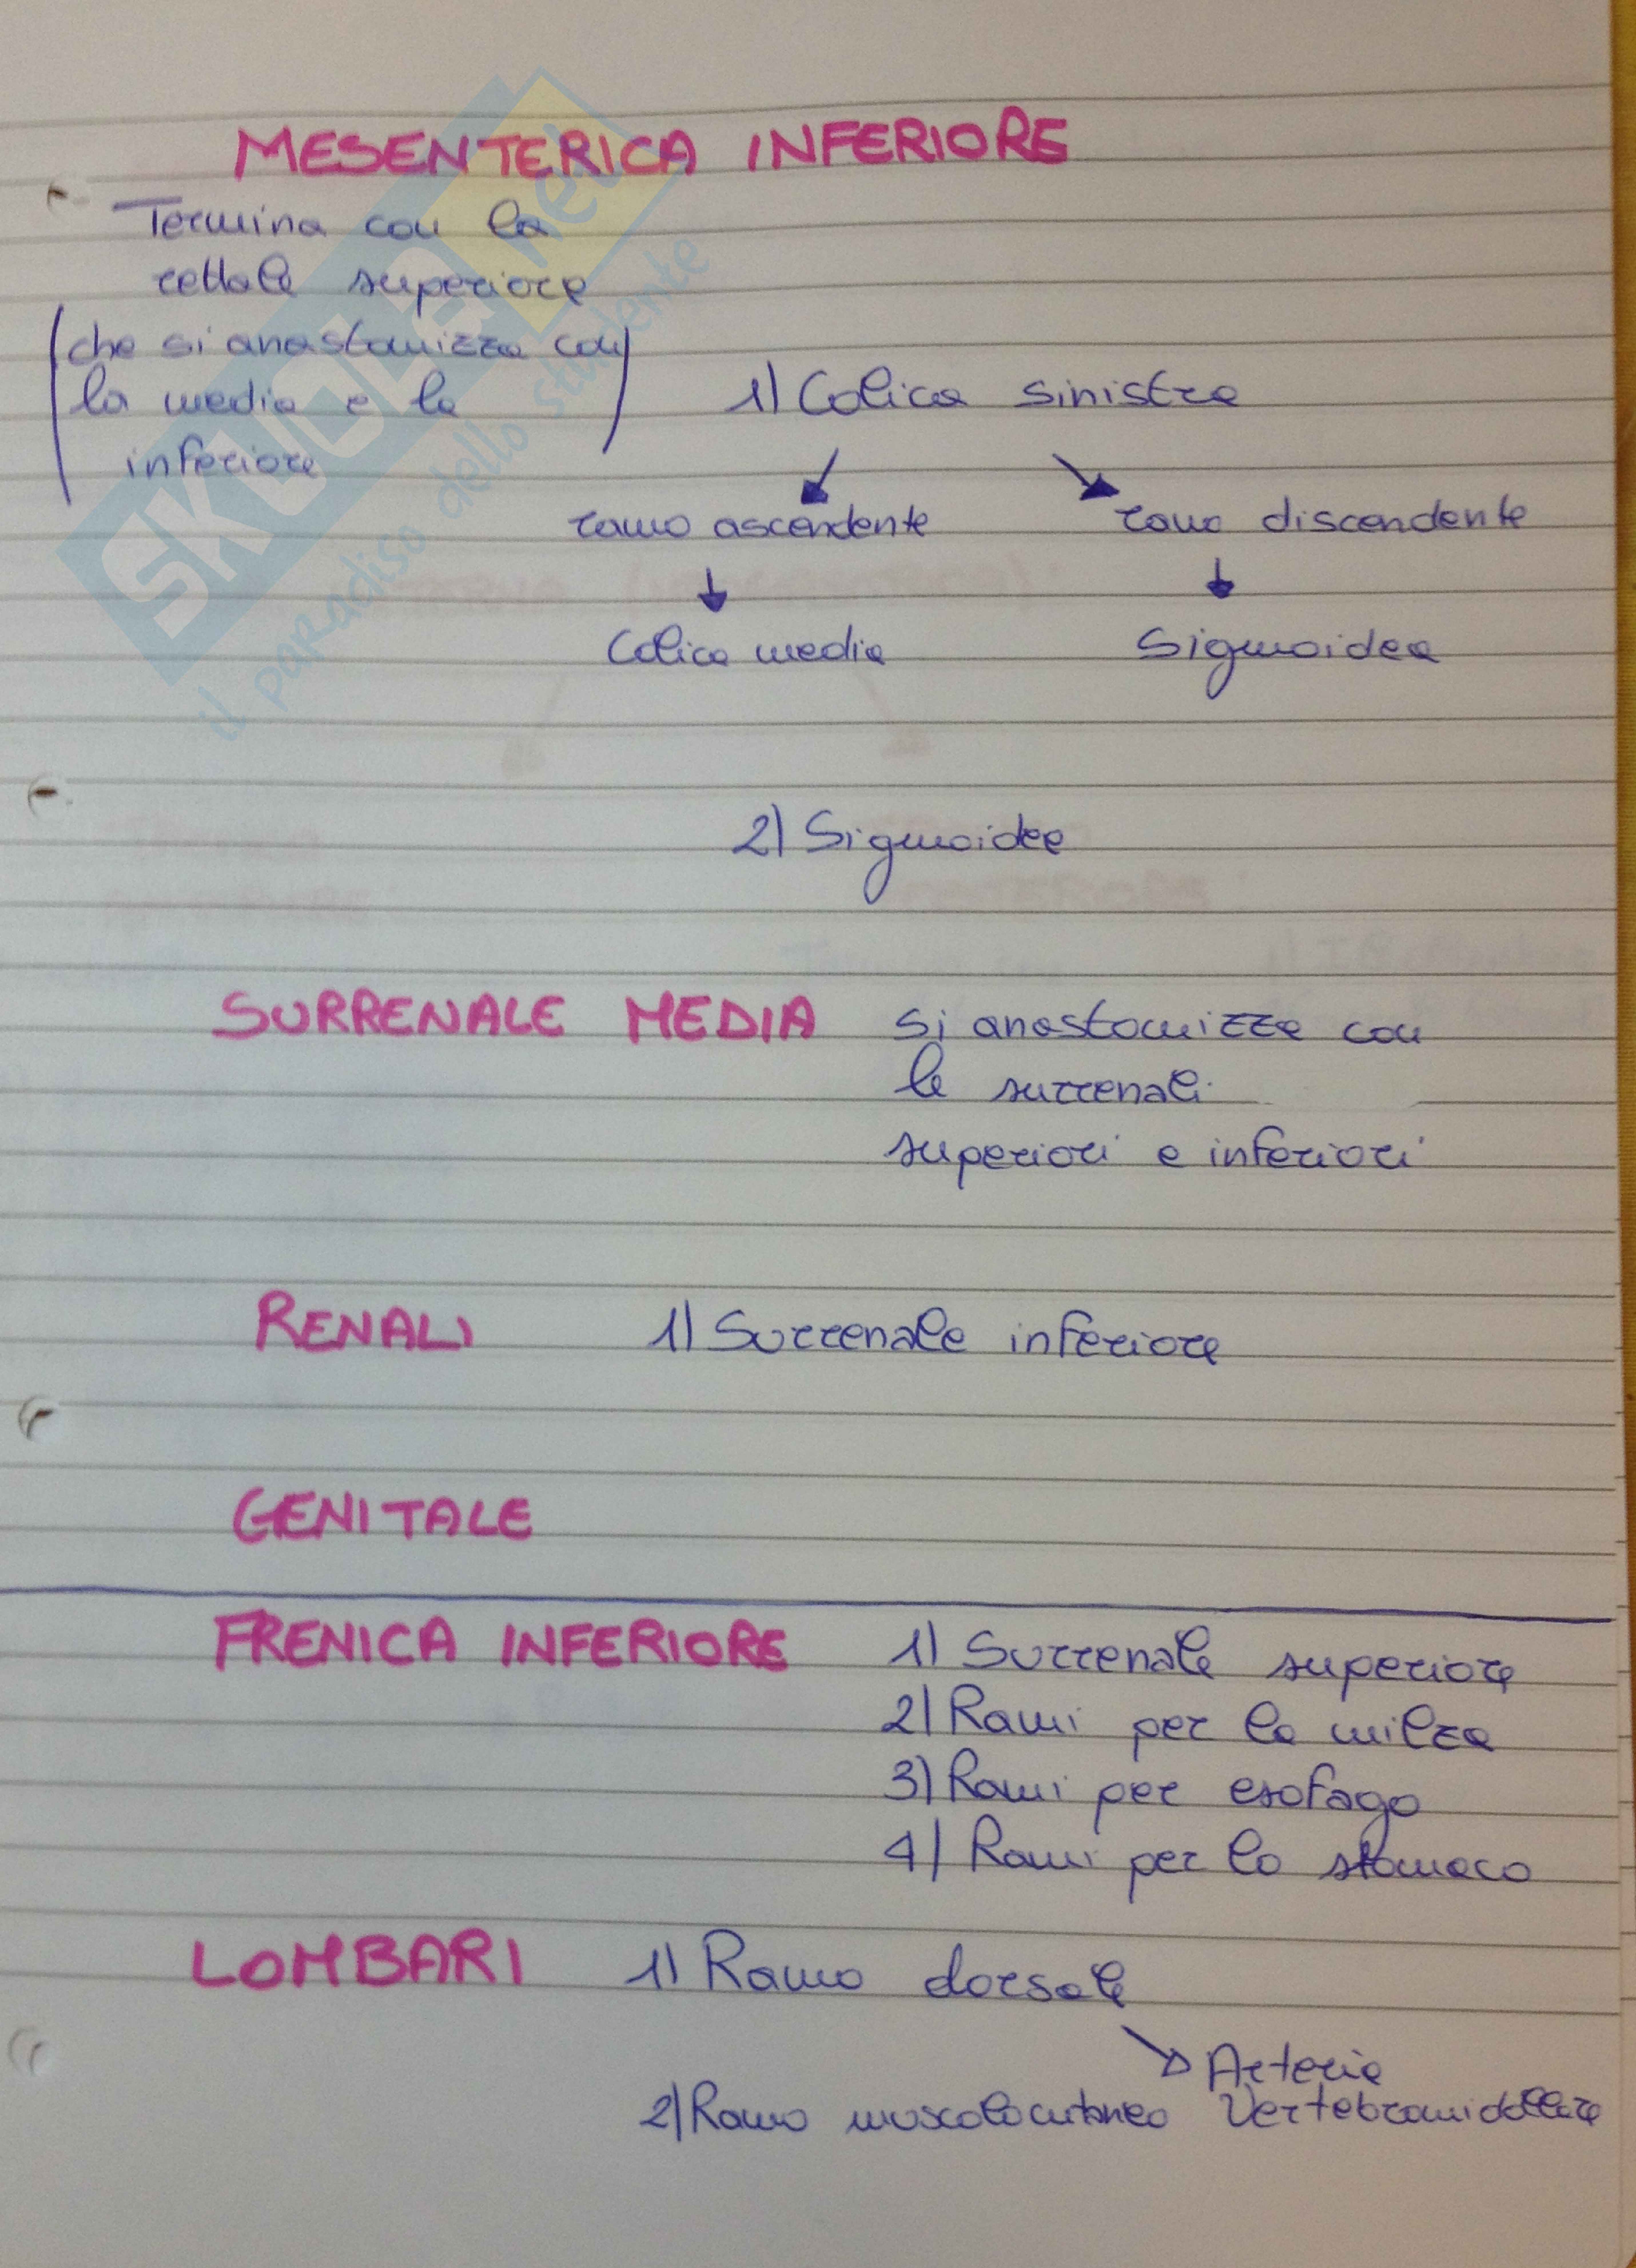 MESENTERICA INFERIORE
Termina con la
rettale superiore
(che si anastomizza con
la media e la
inferiore)
1) Colica sinistra
ramo ascendente
ramo discendente
Colica media
Sigmoidea
2) Sigmoidee
SURRENALE MEDIA si anastomizza con
le surrenali
superiori e inferiori
RENALI 1) Surrenale inferiore
GENITALE
FRENICA INFERIORE 1) Surrenale superiore
2) Rami per la milza
3) Rami per esofago
4) Rami per lo stomaco
LOMBARI 1) Ramo dorsale
Arteria
2) Ramo muscolocutaneo Vertebromidollare
SKUOLA.net
il paradiso dello studente